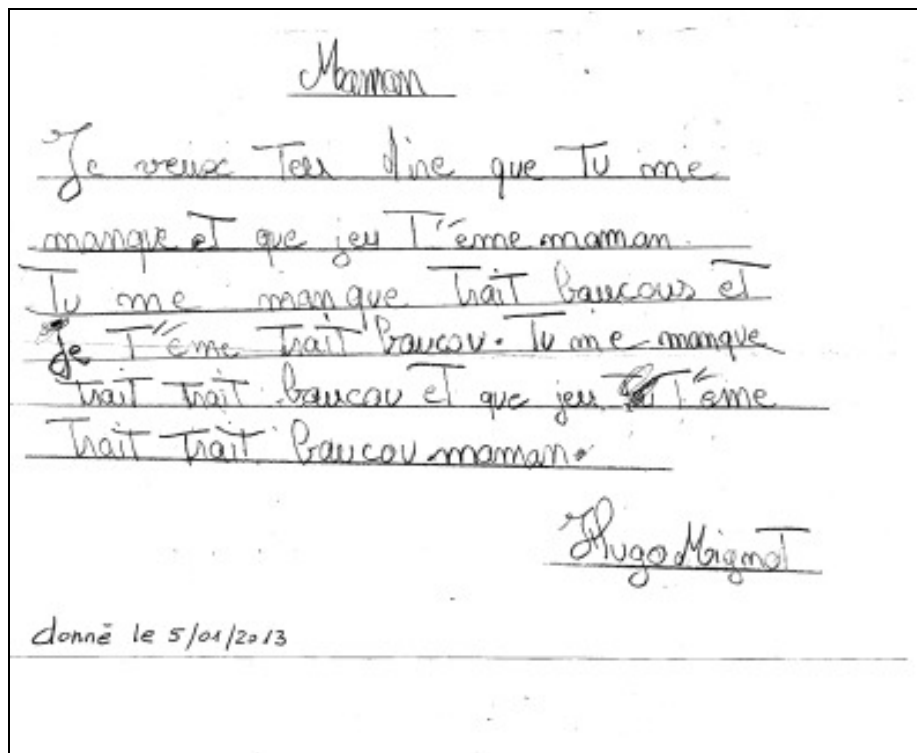 Maman
Je veux Teu dire que Tu me
manque eT que jeu T"ème maman.
Tu me manque TraiT baucous eT
Je T"ème TraiT baucou. Tu me manque
TraiT TraiT baucou eT que jeu T"ème
TraiT TraiT baucou maman.
Hugo MignoT
donné le 5/01/2013